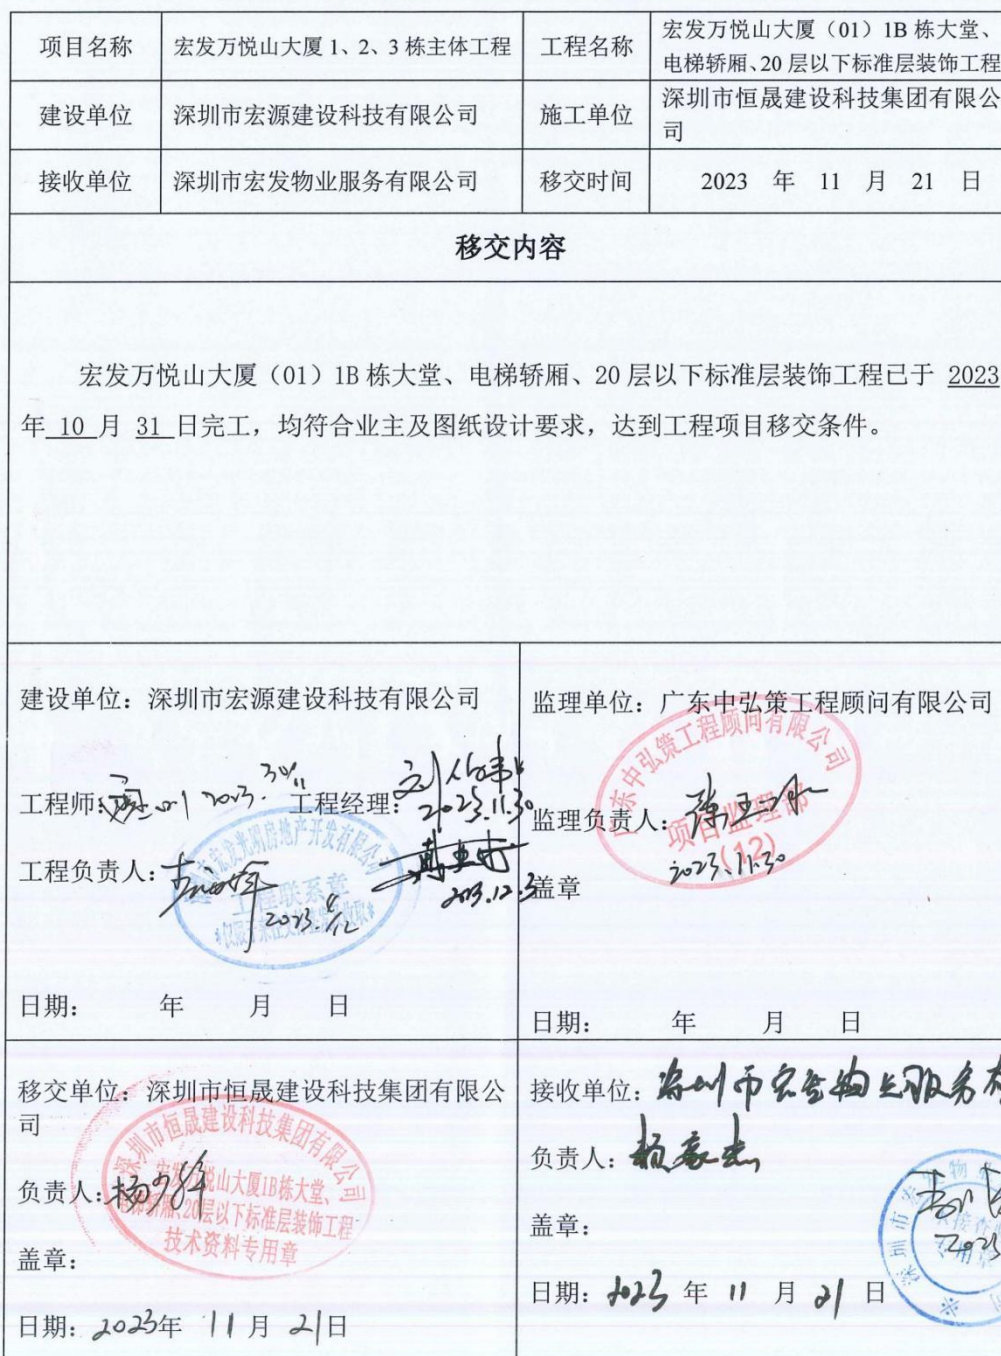 项目名称 宏发万悦山大厦1、2、3栋主体工程 工程名称 宏发万悦山大厦（01）1B栋大堂、
电梯轿厢、20层以下标准层装饰工程
建设单位 深圳市宏源建设科技有限公司 施工单位 深圳市恒晟建设科技集团有限公
司
接收单位 深圳市宏发物业服务有限公司 移交时间 2023 年 11 月 21 日
移交内容
宏发万悦山大厦（01）1B栋大堂、电梯轿厢、20层以下标准层装饰工程已于 2023
年 10 月 31 日完工，均符合业主及图纸设计要求，达到工程项目移交条件。
建设单位：深圳市宏源建设科技有限公司
工程师： 2023. 工程经理：
2023.11.30
工程负责人：
工程联系章
日期： 年 月 日
监理单位：广东中弘策工程顾问有限公司
广东中弘策工程顾问有限公司
监理负责人：
项目监理部
(12)
2023.11.30
盖章
日期： 年 月 日
移交单位：深圳市恒晟建设科技集团有限公
司
深圳市恒晟建设科技集团有限公司
负责人：
宏发万悦山大厦1B栋大堂、
电梯轿厢、20层以下标准层装饰工程
技术资料专用章
盖章：
日期：2023年 11月 21日
接收单位：深圳市宏发物业服务有
负责人：
盖章：
2023
日期：2023 年 11 月 21 日